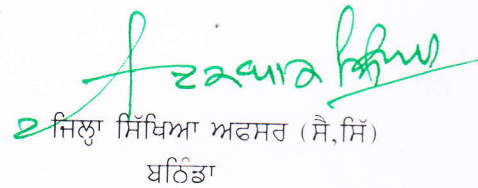 ਜਿਲ੍ਹਾ ਸਿੱਖਿਆ ਅਫਸਰ (ਸੈ,ਸਿੱ)
ਬਠਿੰਡਾ